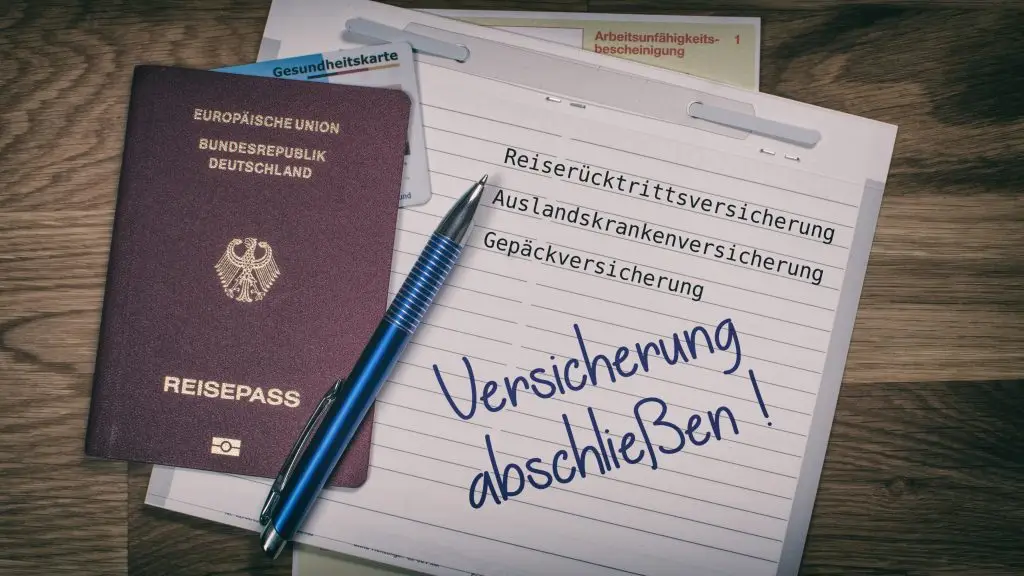 Arbeitsunfähigkeits-
bescheinigung
1
Gesundheitskarte
EUROPÄISCHE UNION
BUNDESREPUBLIK
DEUTSCHLAND
REISEPASS
Reiserücktrittsversicherung
Auslandskrankenversicherung
Gepäckversicherung
Versicherung
abschließen !